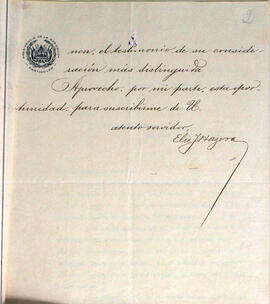 2
non, el testimonio de su conside-
ración más distinguida
Aprovecho, por mi parte, esta opor-
tunidad, para suscribirme de U.
atento servidor,